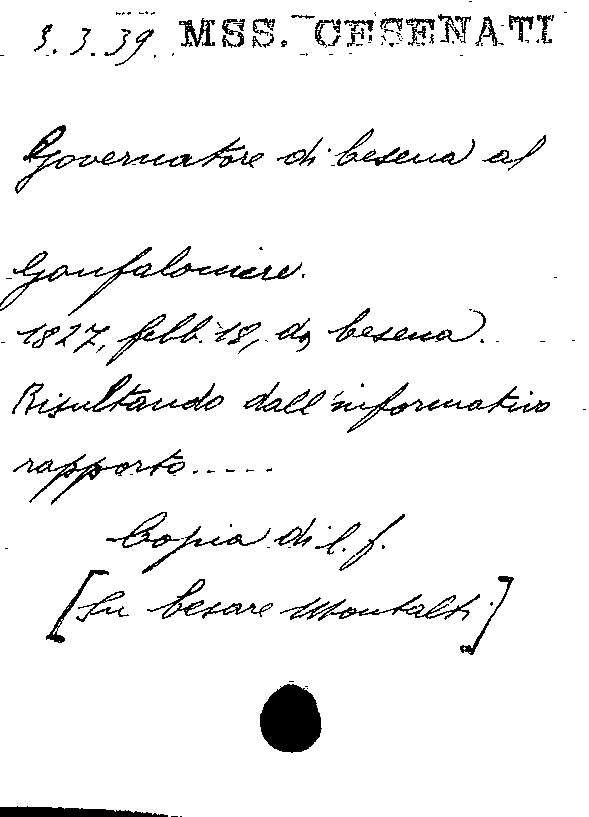 3.3.39 MSS. CESENATI
Governatore di Cesena al
Gonfaloniere.
1827, febb. 18, da Cesena.
Risultando dall'informativo
rapporto.....
Copia di c. f.
[Su Cesare Montalti]